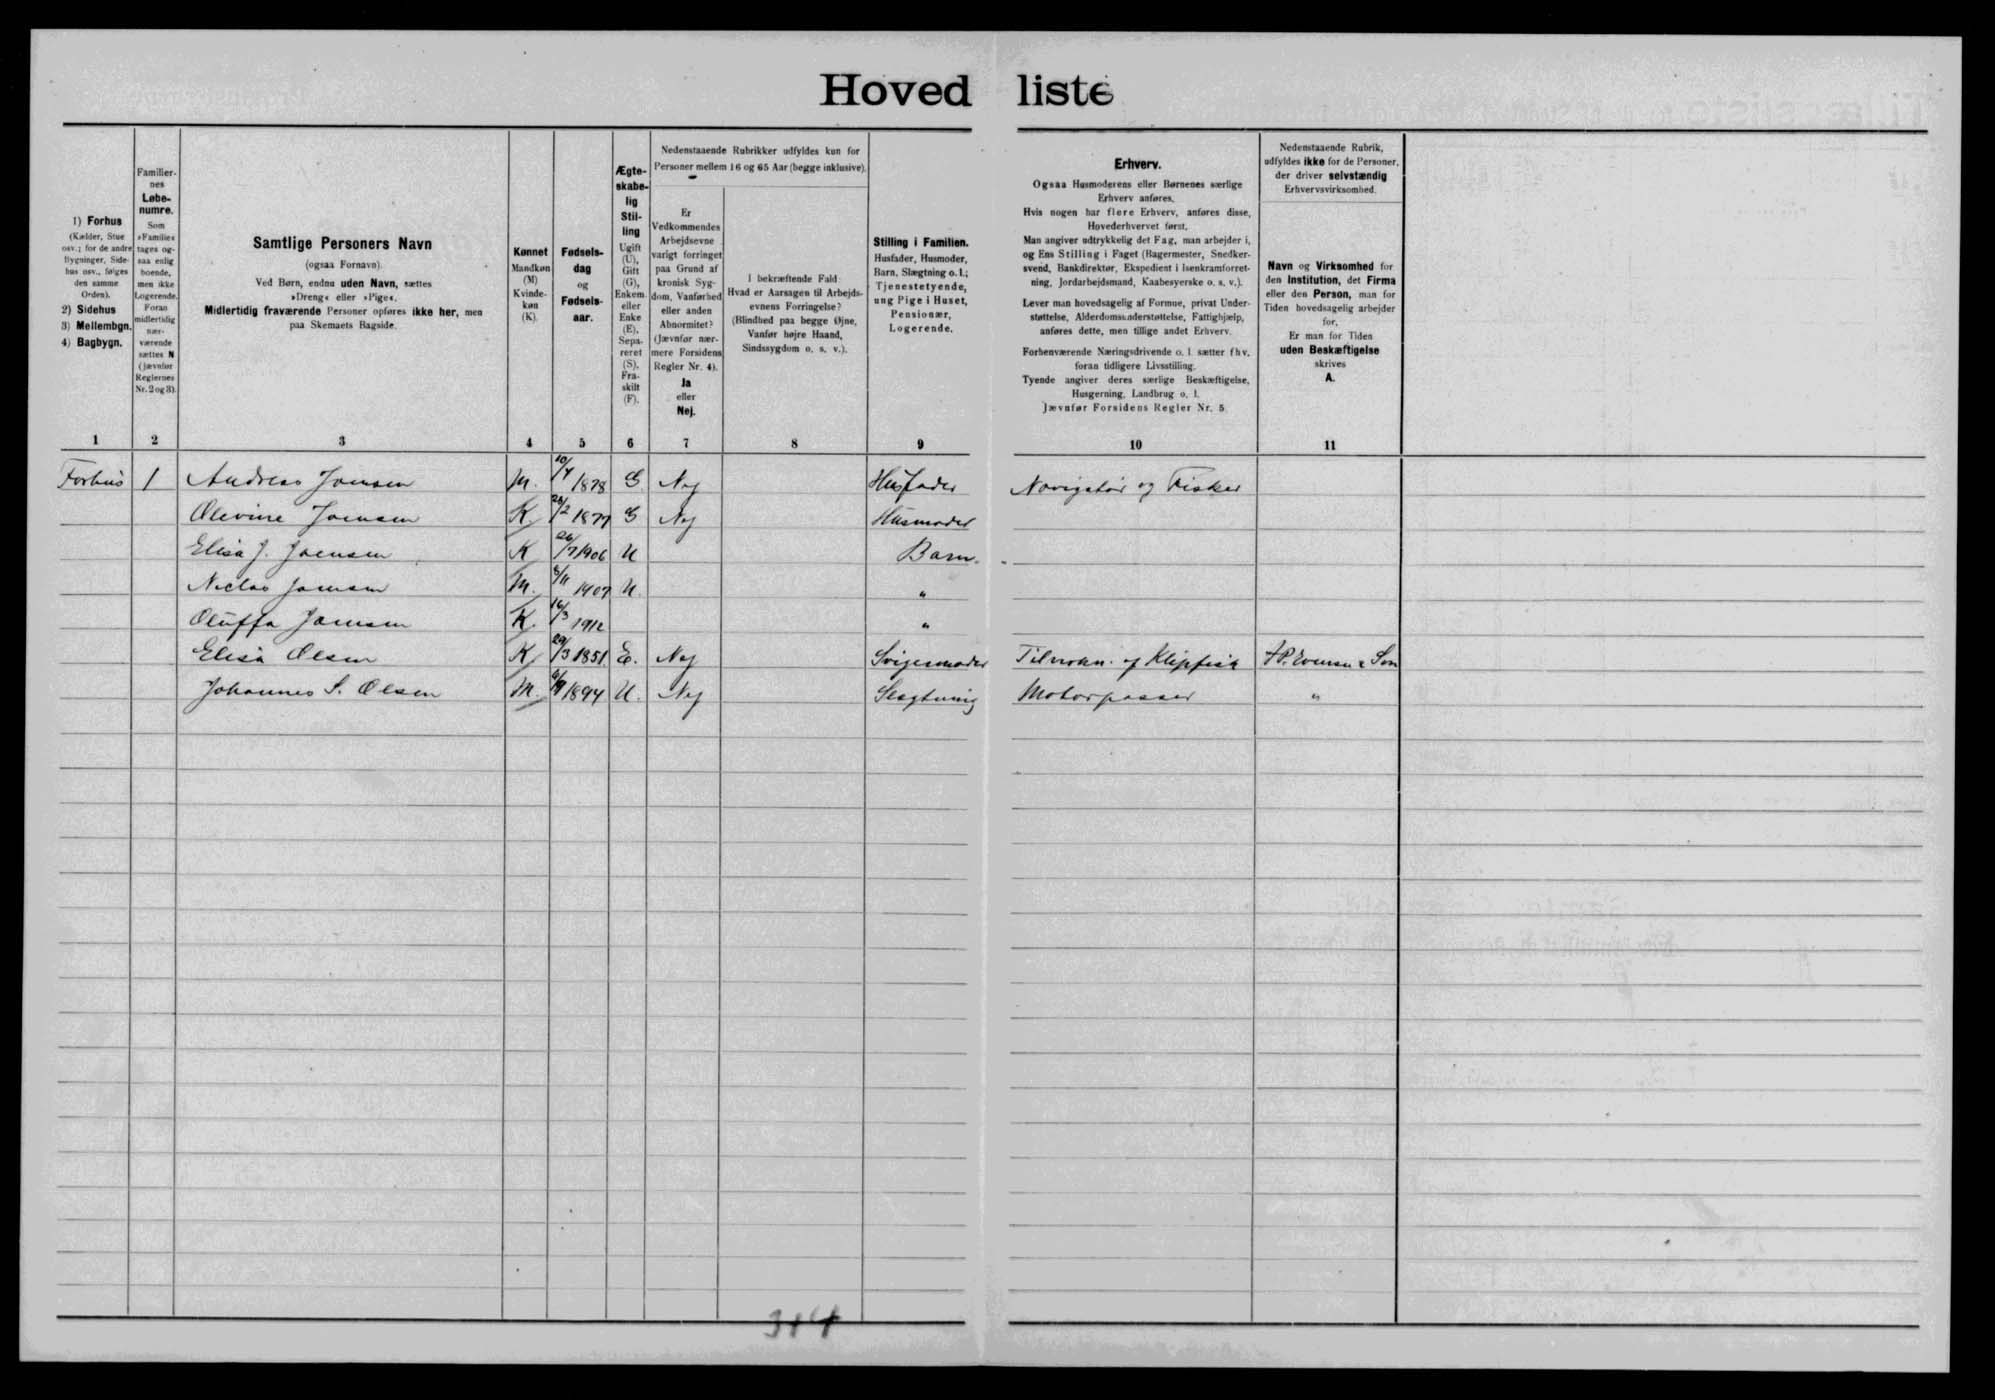 Hovedliste
1) Forhus
(Kælder, Stue
osv.; for de andre
Bygninger, Side-
hus osv., følges
den samme
Orden).
2) Sidehus
3) Mellembgn.
4) Bagbygn.
Familier-
nes
Løbe-
numre.
Som
»Familie«
tages og-
saa enlig
boende,
men ikke
Logerende.
Foran
midlertidig
nær-
værende
sættes N
(jævnfør
Reglernes
Nr. 2 og 3).
Samtlige Personers Navn
(ogsaa Fornavn).
Ved Børn, endnu uden Navn, sættes
»Dreng« eller »Pige«.
Midlertidig fraværende Personer opføres ikke her, men
paa Skemaets Bagside.
Kønnet
Mandkøn
(M)
Kvinde-
køn
(K).
Fødsels-
dag
og
Fødsels-
aar.
Ægte-
skabe-
lig
Stil-
ling
Ugift
(U),
Gift
(G),
Enkem.
eller
Enke
(E),
Sepa-
reret
(S),
Fra-
skilt
(F).
Nedenstaaende Rubrikker udfyldes kun for
Personer mellem 16 og 65 Aar (begge inklusive).
Er
Vedkommendes
Arbejdsevne
varigt forringet
paa Grund af
kronisk Syg-
dom, Vanførhed
eller anden
Abnormitet?
(Jævnfør nær-
mere Forsidens
Regler Nr. 4).
Ja
eller
Nej.
I bekræftende Fald:
Hvad er Aarsagen til Arbejds-
evnens Forringelse?
(Blindhed paa begge Øjne,
Vanfør højre Haand,
Sindssygdom o. s. v.).
Stilling i Familien.
Husfader, Husmoder,
Barn, Slægtning o. l.;
Tjenestetyende,
ung Pige i Huset,
Pensionær,
Logerende.
Erhverv.
Ogsaa Husmoderens eller Børnenes særlige
Erhverv anføres.
Hvis nogen har flere Erhverv, anføres disse,
Hovederhvervet først.
Man angiver udtrykkelig det Fag, man arbejder i,
og Ens Stilling i Faget (Bagermester, Snedker-
svend, Bankdirektør, Ekspedient i Isenkramforret-
ning, Jordarbejdsmand, Kaabesyerske o. s. v.).
Lever man hovedsagelig af Formue, privat Under-
støttelse, Alderdomsunderstøttelse, Fattighjælp,
anføres dette, men tillige andet Erhverv.
Forhenværende Næringsdrivende o. l. sætter fhv.
foran tidligere Livsstilling.
Tyende angiver deres særlige Beskæftigelse,
Husgerning, Landbrug o. l.
Jævnfør Forsidens Regler Nr. 5.
Nedenstaaende Rubrik,
udfyldes ikke for de Personer,
der driver selvstændig
Erhvervsvirksomhed.
Navn og Virksomhed for
den Institution, det Firma
eller den Person, man for
Tiden hovedsagelig arbejder
for.
Er man for Tiden
uden Beskæftigelse
skrives
A.
1 2 3 4 5 6 7 8 9 10 11
Forhus 1 Andreas Joensen M. 10/4 1878 G Nej Husfader Navigatør og Fisker
Olevine Joensen K 28/2 1877 G Nej Husmoder
Elisa J. Joensen K 26/7 1906 U Barn
Niclas Joensen M. 8/11 1907 U. "
Oluffa Joensen K. 16/3 1912 "
Elisa Olsen K 29/3 1851 E. Nej Svigermoder Tilvirkn. af Klipfisk & Søn
Johannes S. Olsen M. 1894 U. Nej Slægtning Motorpasser "
314